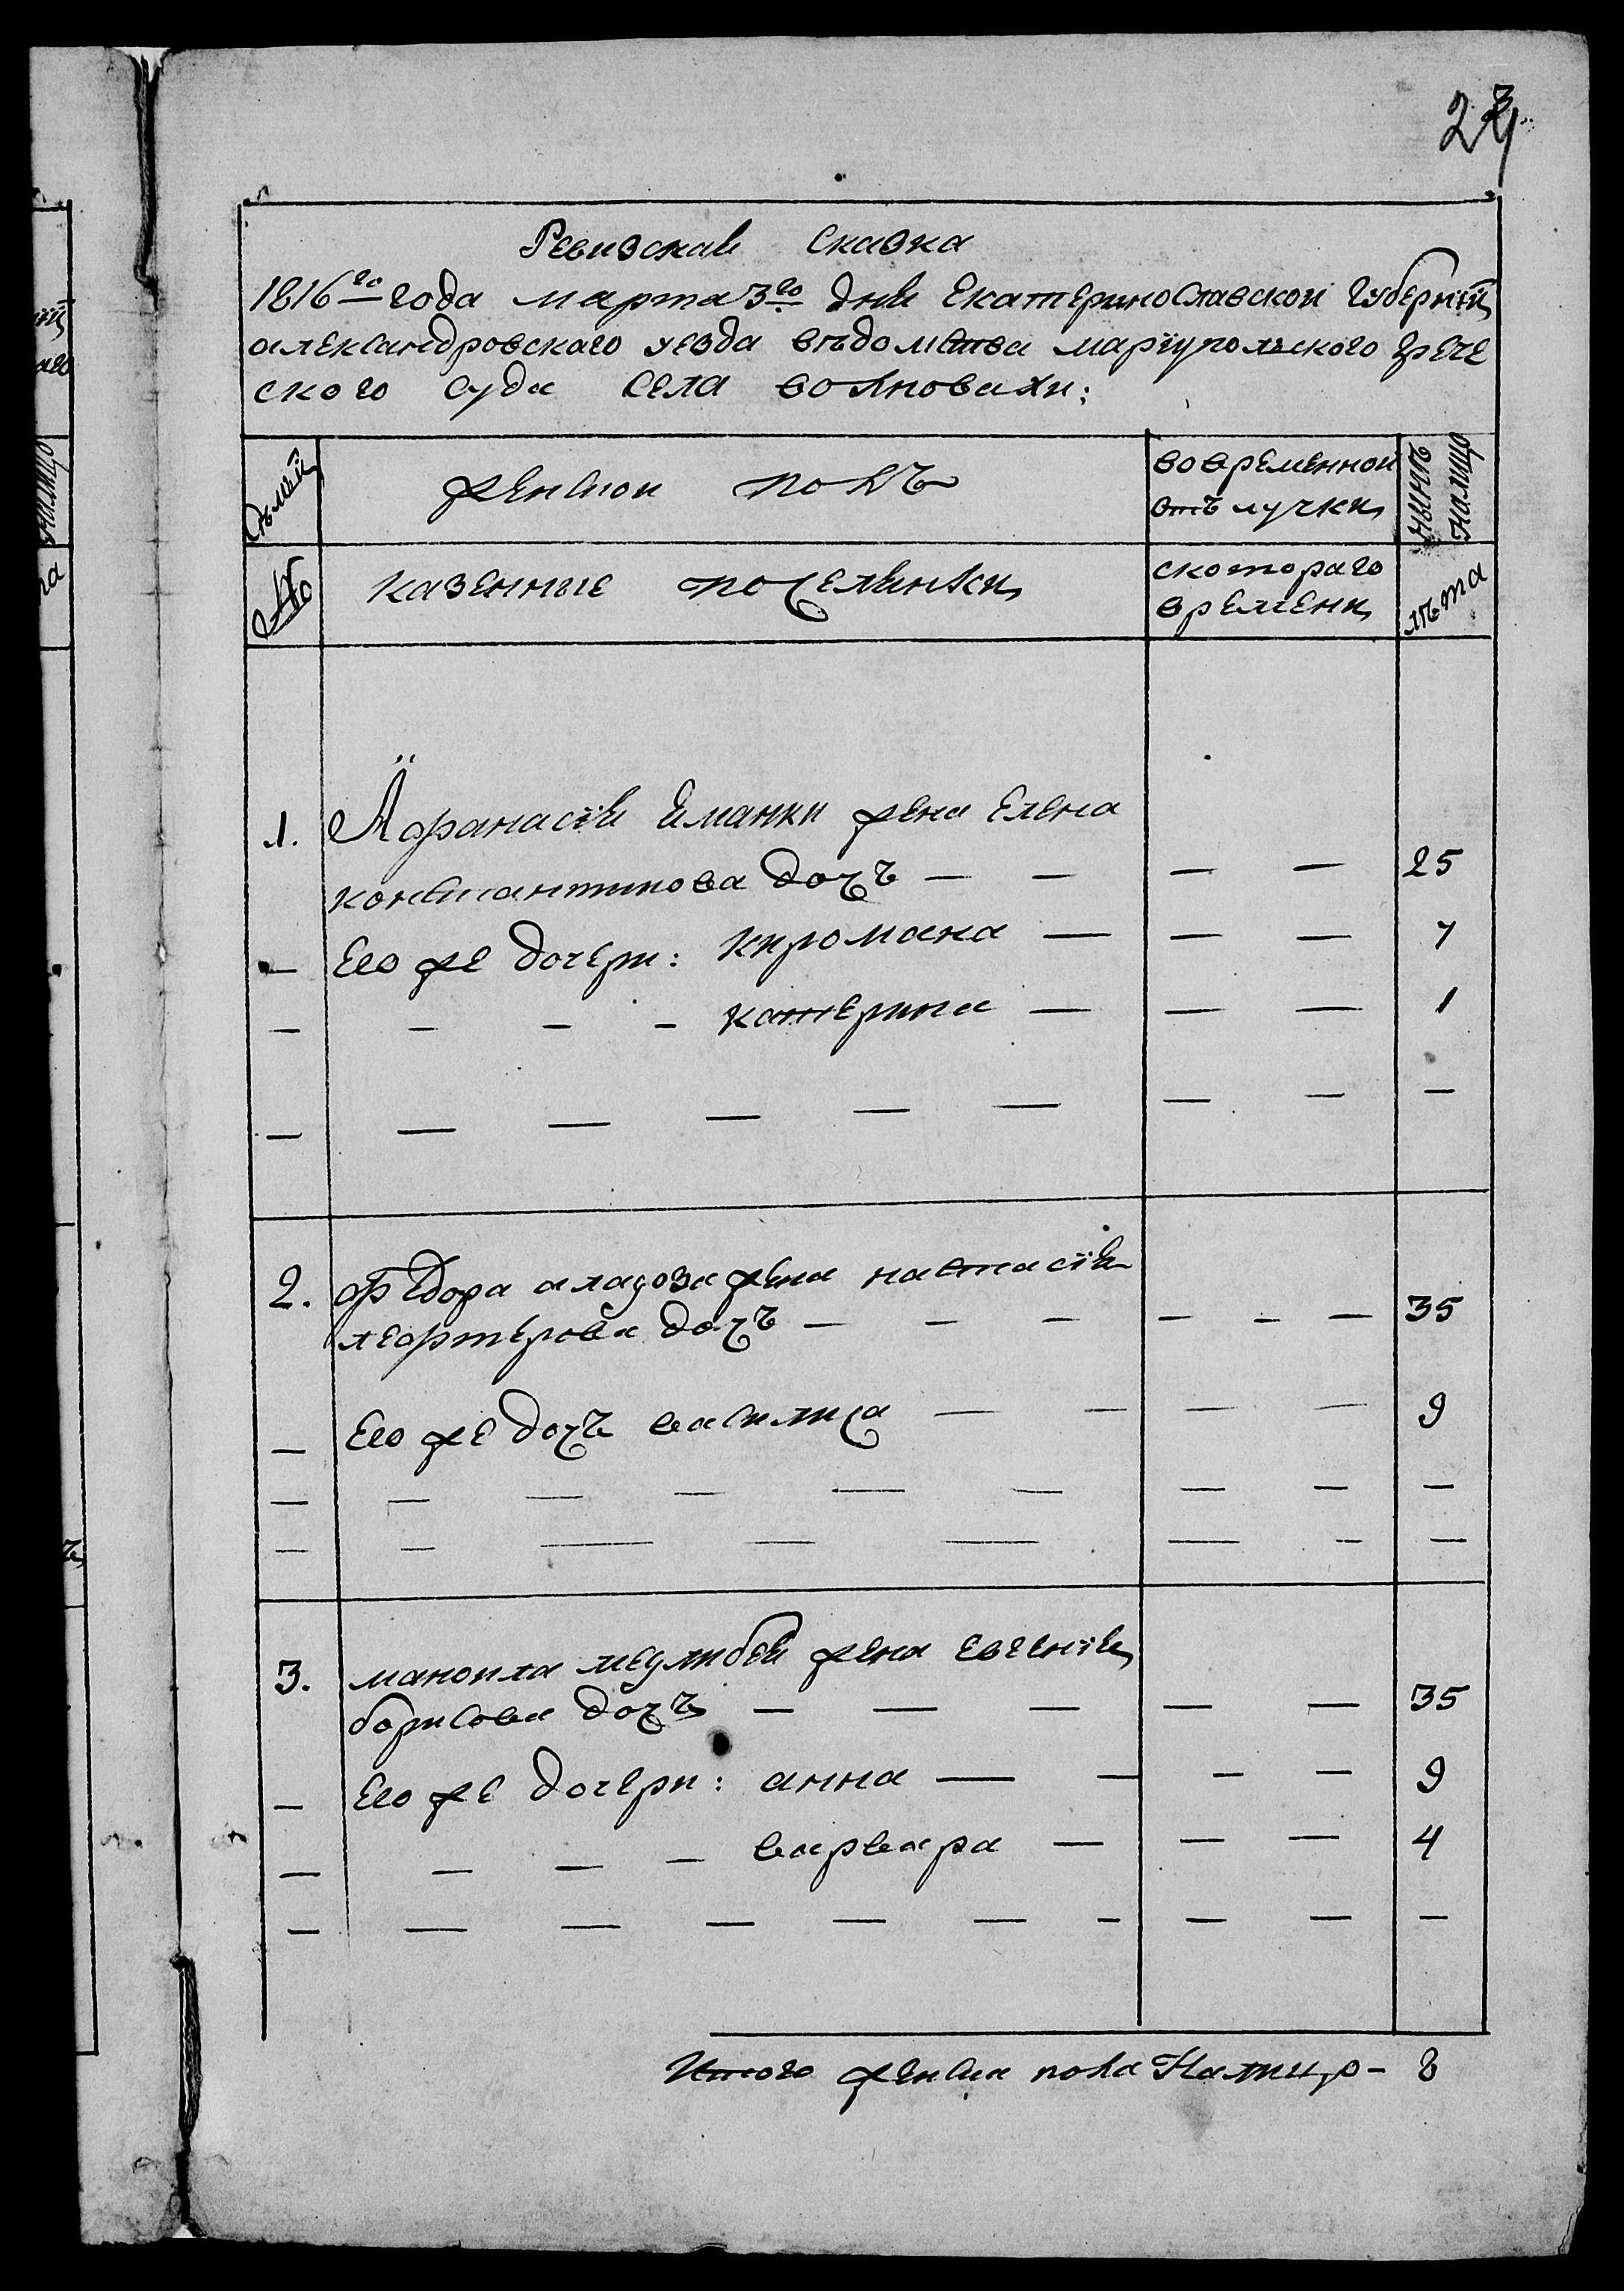 Ревизская Сказка
1816го года марта 3го дня Екатеринославской Губернїи
александровскаго уезда вѣдомства марїупольского грече
ского суда села волновахи:
Семьи женскои полъ во временной отълучки нынѣ налицо
№ казенные поселянки скотораго времени лѣта
1. Афанасїя Еманжи жена Елена
константинова дочъ — — — — 25
— Его же дочери: Кирмана — — — 7
— — — — катерина — — — 1
— — — — — — — — —
2. Федора аладова жена настасїя
леффтерова дочъ — — — — — — 35
— Его же дочъ василиса — — — — 9
— — — — — — — — —
— — — — — — — — —
3. маноила меглибея жена евгенїя
борисова дочъ — — — — — 35
— Его же дочери: анна — — — — 9
— — — — варвара — — — 4
— — — — — — — — — —
Итого женска пола Налицо - 8